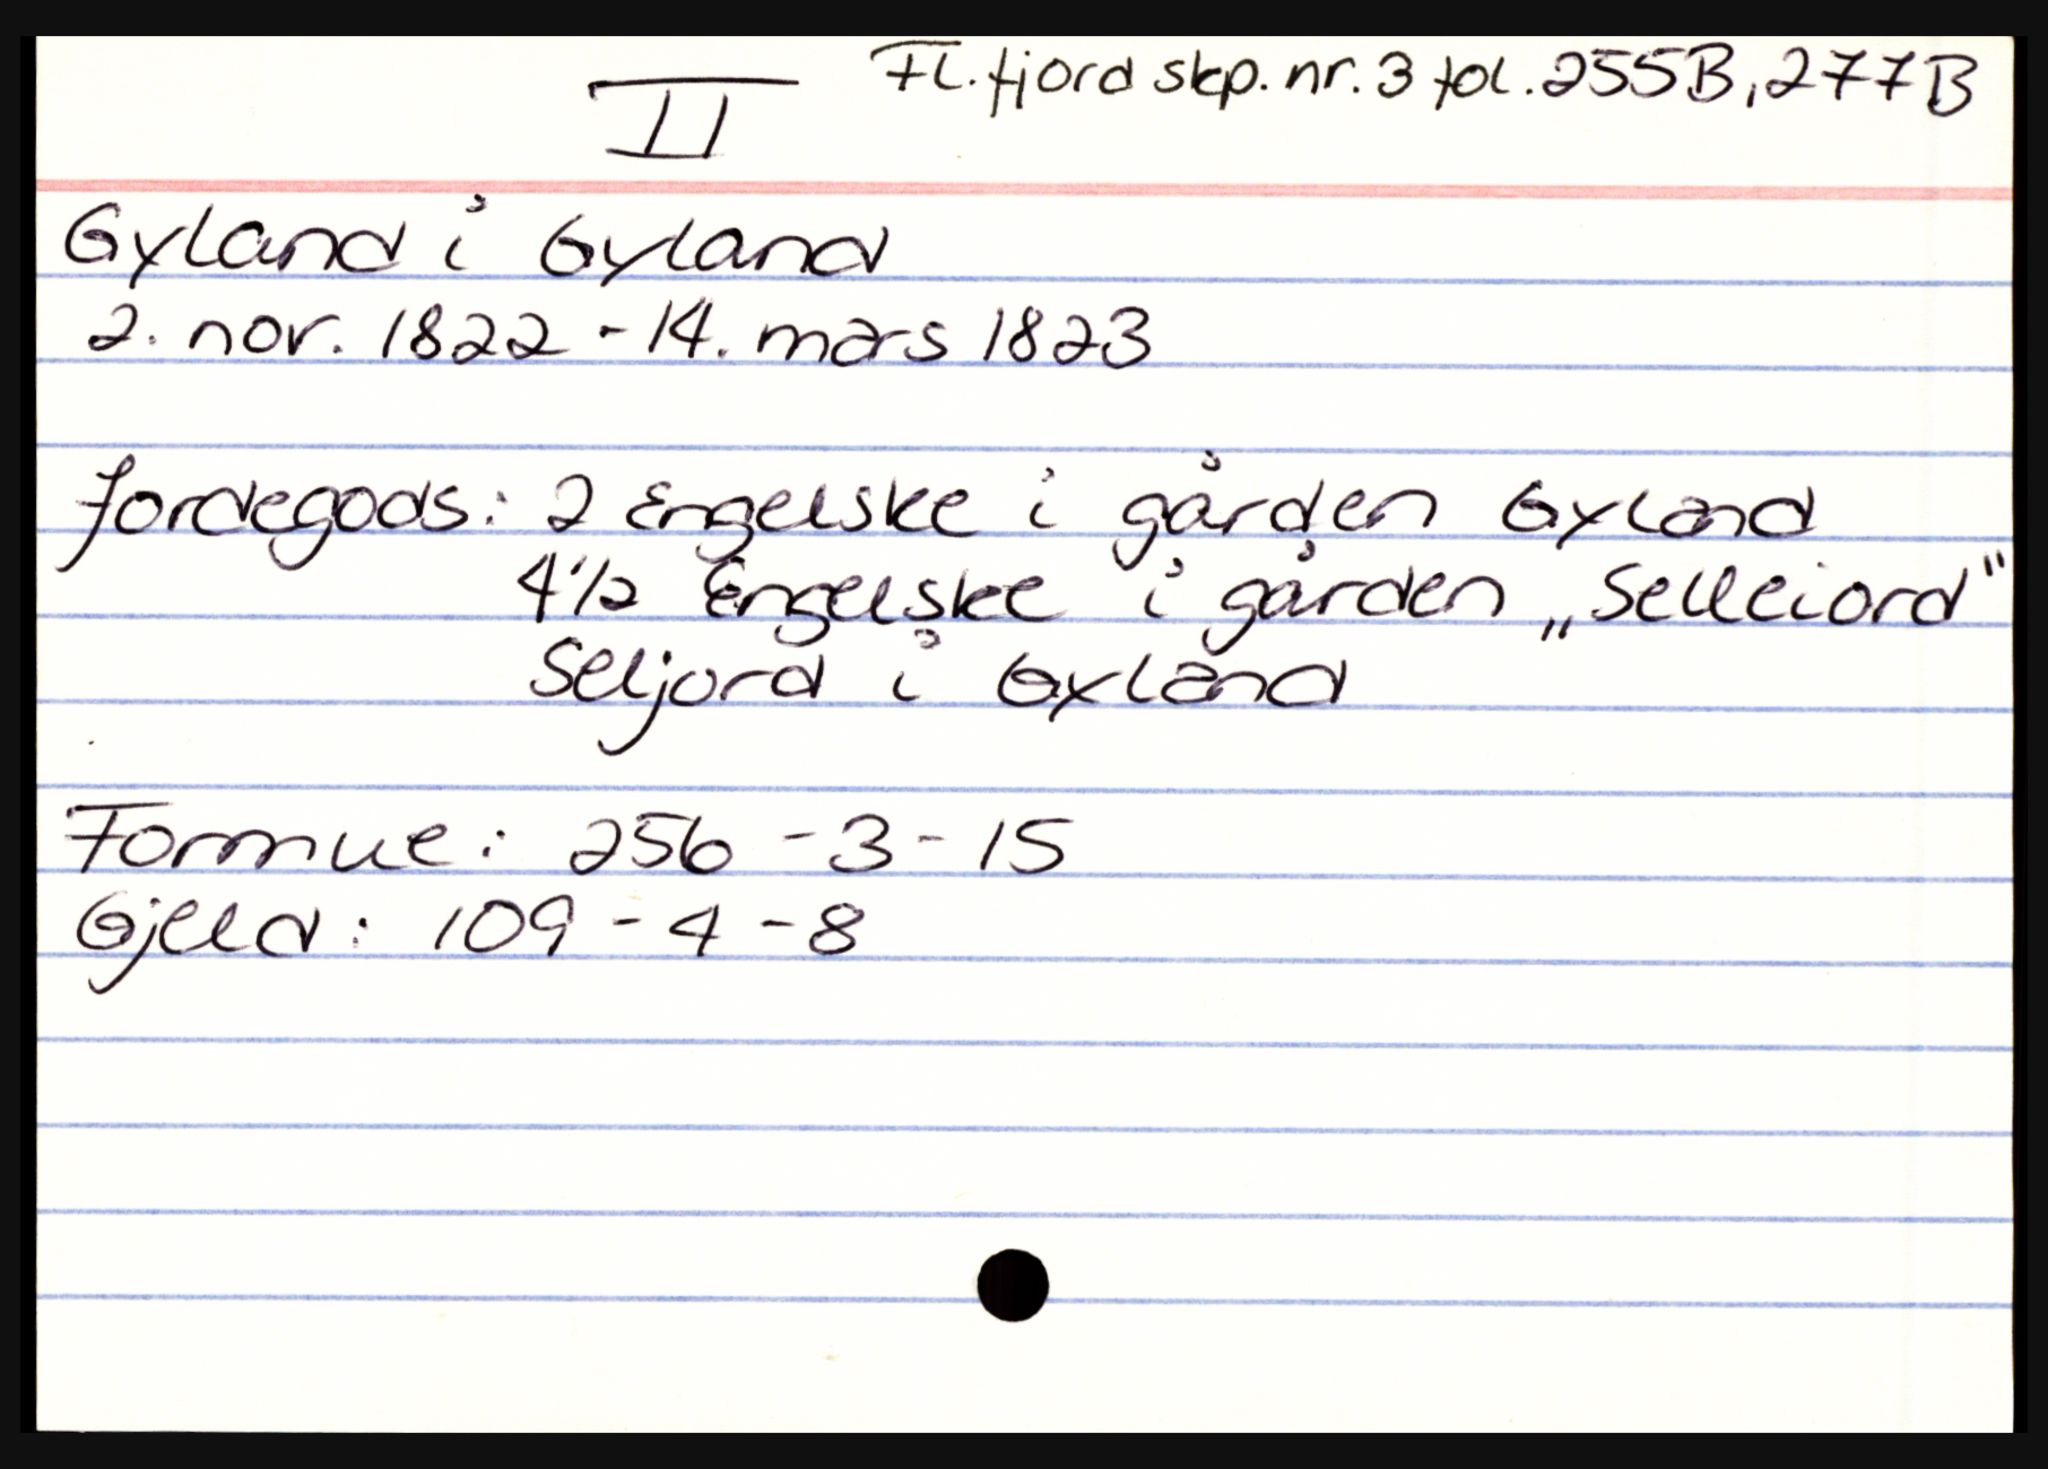 II
Fl.fjord skp. nr. 3 fol. 255B, 277B
Gyland i Gyland
2. nov. 1822 - 14. mars 1823
Jordegods: 2 Engelske i gården Gyland
4 1/2 Engelske i gården „Selleiord"
Seljord i Gyland
Formue: 256 - 3 - 15
Gjeld: 109 - 4 - 8